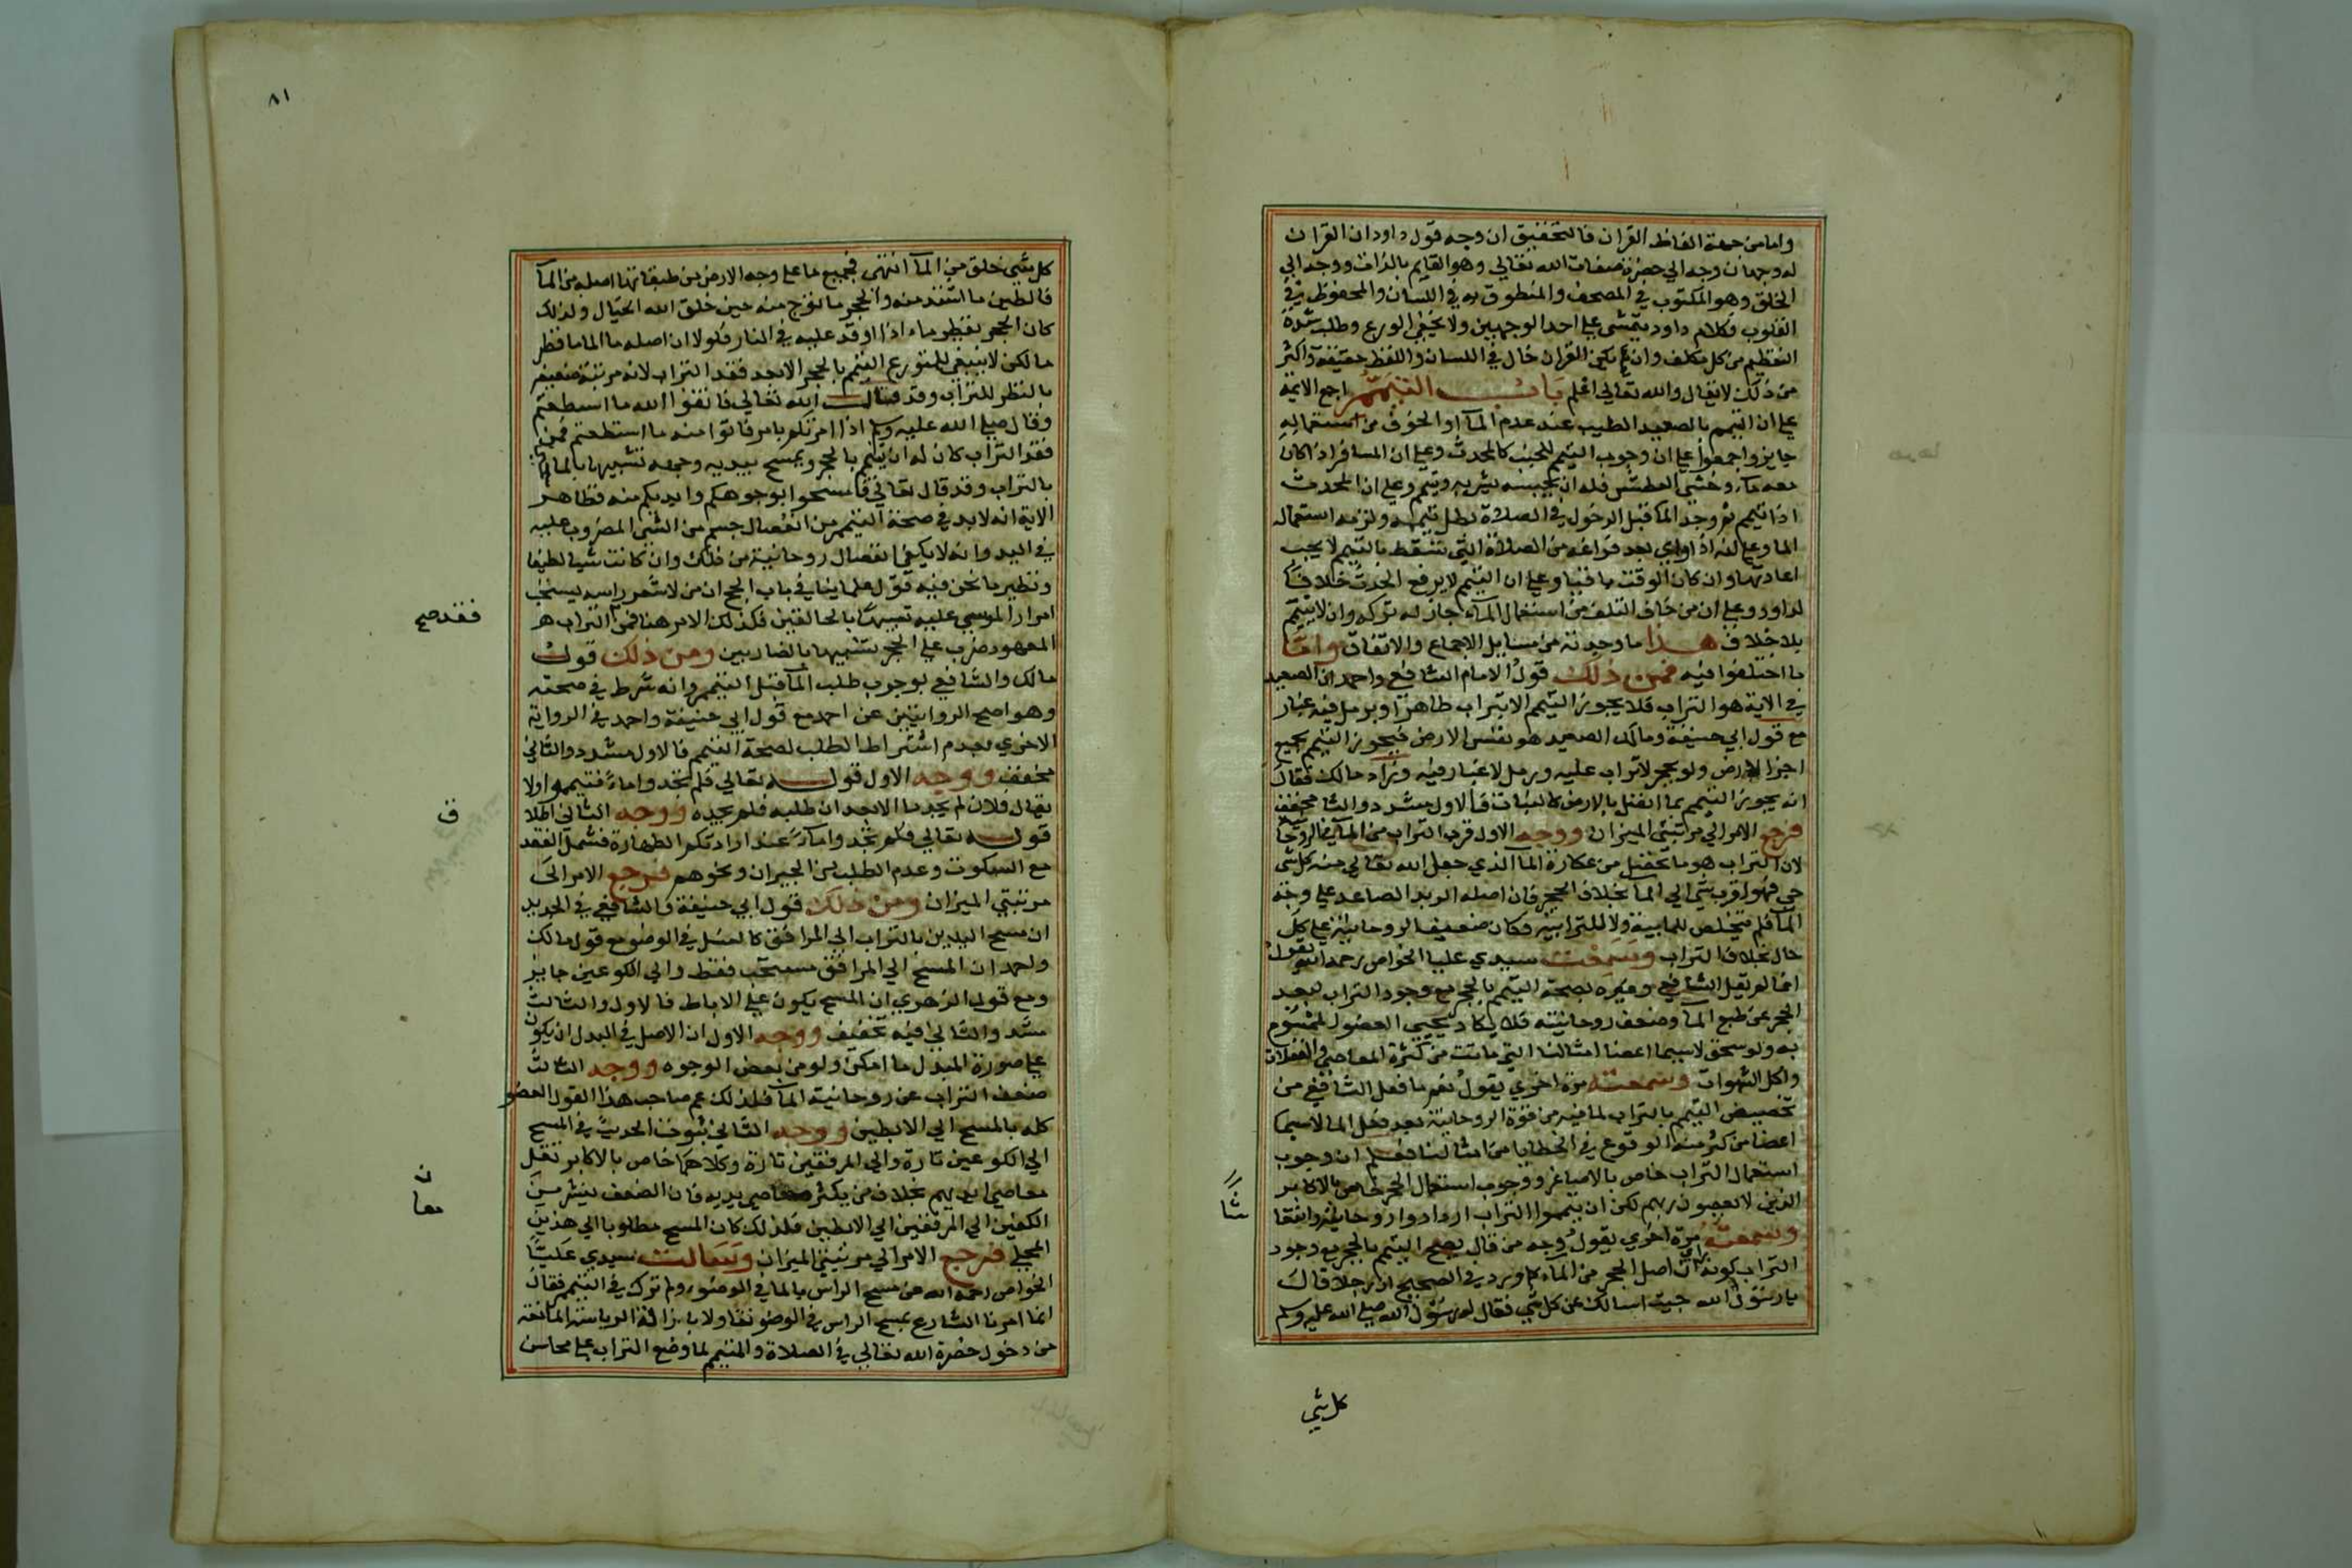 واما من جهة الفاظ القران فالتحقيق ان وجه قول داود ان القران
له وجهان وجه الي حضرة صفات الله تعالي وهو القايم بالذات ووجه الي
الخلق وهو المكتوب في المصحف والمنطوق به في اللسان والمحفوظ في
القلوب فكلام داود يتمشى علي احد الوجهين ولا يخفي الورع وطلب شدة
التعظيم من كل مكلف وان لم يكن القران حال في اللسان واللفظ حقيقة واكثر
من ذلك لا يقال والله تعالي اعلم باب التيمم اجمع الايمة
علي ان التيمم بالصعيد الطيب عند عدم المآ او الخوف من استعماله
جايز واجمعوا علي ان وجوب التيمم للجنب كالمحدث وعلي ان المسافر اذا كان
معه مآء وخشي العطش فله ان يحبسه لشربه ويتيمم وعلي ان المحدث
اذا تيمم ثم وجد المآ قبل الدخول في الصلاة بطل تيممه ولزمه استعمال
الما وعلي انه اذا راي بعد فراغه من الصلاة التي تسقط بالتيمم لا يجب
اعادتها وان كان الوقت باقيا وعلي ان التيمم لا يرفع الحدث خلافا
لداود وعلي ان من خاف التلف من استعمال المآء جاز له تركه وان لا يتيمم
بلا خلاف هذا ما وجدته من مسايل الاجماع والاتفاق واما
ما اختلفوا فيه فمن ذلك قول الامام الشافعي واحمد ان الصعيد
في الاية هو التراب فلا يجوز التيمم الا بتراب طاهر او برمل فيه غبار
مع قول ابي حنيفة ومالك الصعيد هو نفس الارض فيجوز التيمم بجميع
اجزا الارض ولو بحجر لا تراب عليه ورمل لا غبار فيه وزاد مالك فقال
انه يجوز التيمم بما اتصل بالارض كالنبات فالاول مشدد والثا مخفف
فرجع الامر الي مرتبتي الميزان ووجه الاول قرب التراب من المآ في الروحا
لان التراب هو ما تحصل من عكارة المآ الذي جعل الله تعالي منه كل شي
حي فهو اقرب شي الي المآ بخلاف الحجر فان اصله الزبد الصاعد علي وجه
المآ فلم يتخلص للمايية ولا للترابية فكان ضعيف الروحانية علي كل
حال بخلاف التراب وسمعت سيدي عليا الخواص رحمه الله يقول
انما لم يقل الشافعي وغيره بصحة التيمم بالحجر مع وجود التراب لبعد
الحجر عن طبع المآ وضعف روحانيته فلا يكاد يحيي العضو الممسوح
به ولو سحق لا سيما اعضا امثالنا التي ماتت من كثرة المعاصي والغفلات
واكل الشهوات وسمعته مرة اخري يقول نعم ما فعل الشافعي من
تخصيص التيمم بالتراب لما فيه من قوة الروحانية بعد فقد الما لا سيما
اعضا من كثر منه الوقوع في الخطايا من امثالنا فعلم ان وجوب
استعمال التراب خاص بالاصاغر ووجوب استعمال الحجر خاص بالاكابر
الذين لا يعصون ربهم لكن ان تيمموا التراب ازدادوا روحانية وانتعاشا
وسمعته مرة اخري يقول وجه من قال يصح التيمم بالحجر مع وجود
التراب كونه راي اصل الحجر من المآء كما ورد في الصحيح ان رجلا قال
يارسول الله جيت اسالك عن كل شي فقال له رسول الله صلي الله عليه وسلم
كل شي
٨١
كل شي خلق من المآ انتهي فجميع ما علي وجه الارض من طبقاتها اصله من المآ
كان الحجر يقطر ماء اذا اوقد عليه في النار فلولا ان اصله ما الما ما قطر
ما لكن لا ينبغي للمتورع التيمم بالحجر الا بعد فقد التراب لانه مرتبة ضعيفة
بالنظر للتراب وقد قال الله تعالي فاتقوا الله ما استطعتم
وقال صلي الله عليه وسلم اذا امرتكم بامر فاتوا منه ما استطعتم فمن
فقد التراب كان له ان يتيمم بالحجر ويمسح بيديه وجهه تشبيها بالما
بالتراب وقد قال تعالي فامسحوا بوجوهكم وايديكم منه فظاهر
الاية انه لا بد في صحة التيمم من انفصال جسم من الشي المضروب عليه
في اليد وانه لا يكفي انفصال روحانية من ذلك وان كانت شيا لطيفا
ونظير ما نحن فيه قول علماينا في باب الحج ان من لا شعر براسه يستحب
امرار الموسي عليه تشبيها بالحالقين فكذلك الامر هنا فمن التراب هر
المعهود ضرب علي الحجر تشبيها بالضاربين ومن ذلك قول
مالك والشافعي بوجوب طلب المآ قبل التيمم وانه شرط في صحته
وهو اصح الروايتين عن احمد مع قول ابي حنيفة واحمد في الرواية
الاخري بعدم اشتراط الطلب لصحة التيمم فالاول مشدد والثاني
مخفف ووجه الاول قوله تعالي فلم تجدوا ماءً فتيمموا ولا
يقال فلان لم يجد ما الا بعد ان طلبه فلم يجده ووجه الثاني اطلا
قوله تعالي فلم تجدوا مآءً عند ارادتكم الطهارة فشمل الفقد
مع السكوت وعدم الطلب من الجيران ونحوهم فرجع الامر الى
مرتبتي الميزان ومن ذلك قول ابي حنيفة والشافعي في الجديد
ان مسح اليدين بالتراب الي المرافق كالغسل في الوضو مع قول مالك
واحمد ان المسح الي المرافق مستحب فقط والي الكوعين جايز
ومع قول الزهري ان المسح يكون علي الاباط فالاول والثالث
مشدد والثاني فيه تخفيف ووجه الاول ان الاصل في البدل ان يكون
علي صورة المبدل ما امكن ولو من بعض الوجوه ووجه الثالث
ضعف التراب عن روحانية المآ فلذلك عم صاحب هذا القول العضو
كله بالمسح الي الابطين ووجه الثاني ثبوت الحديث في المسح
الي الكوعين تارة والي المرفقين تارة وكلاهما خاص بالاكابر لقلة
معاصي ايديهم بخلاف من يكثر معاصي يديه فان الضعف ينشر من
الكفين الي المرفقين الي الابطين فلذلك كان المسح مطلوبا الي هذين
المحلين فرجع الامر الي مرتبتي الميزان وسالت سيدي عليا
الخواص رحمه الله عن مسح الراس بالما في الوضوء ولم ترك في التيمم فقال
انما امرنا الشارع بمسح الراس في الوضو تفاولا بازالة الرياسة المانعة
من دخول حضرة الله تعالي في الصلاة والمتيمم لما وضع التراب علي محاسن
فقد صح
ق